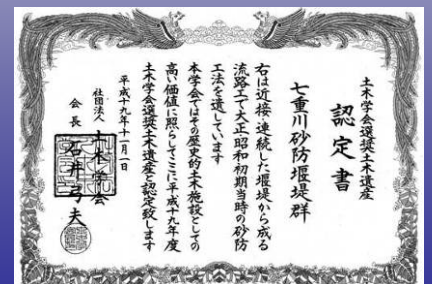 土木学会選奨土木遺産
認定書
七重川砂防堰堤群
右は近接・連続した堰堤から成る
流路工で大正昭和初期当時の砂防
工法を遺しています
本学会ではその歴史的土木施設としての
高い価値に照らしてここに平成十九年度
土木学会選奨土木遺産と認定致します
平成十九年十一月一日
社団法人 土木学会
会長 石井弓夫